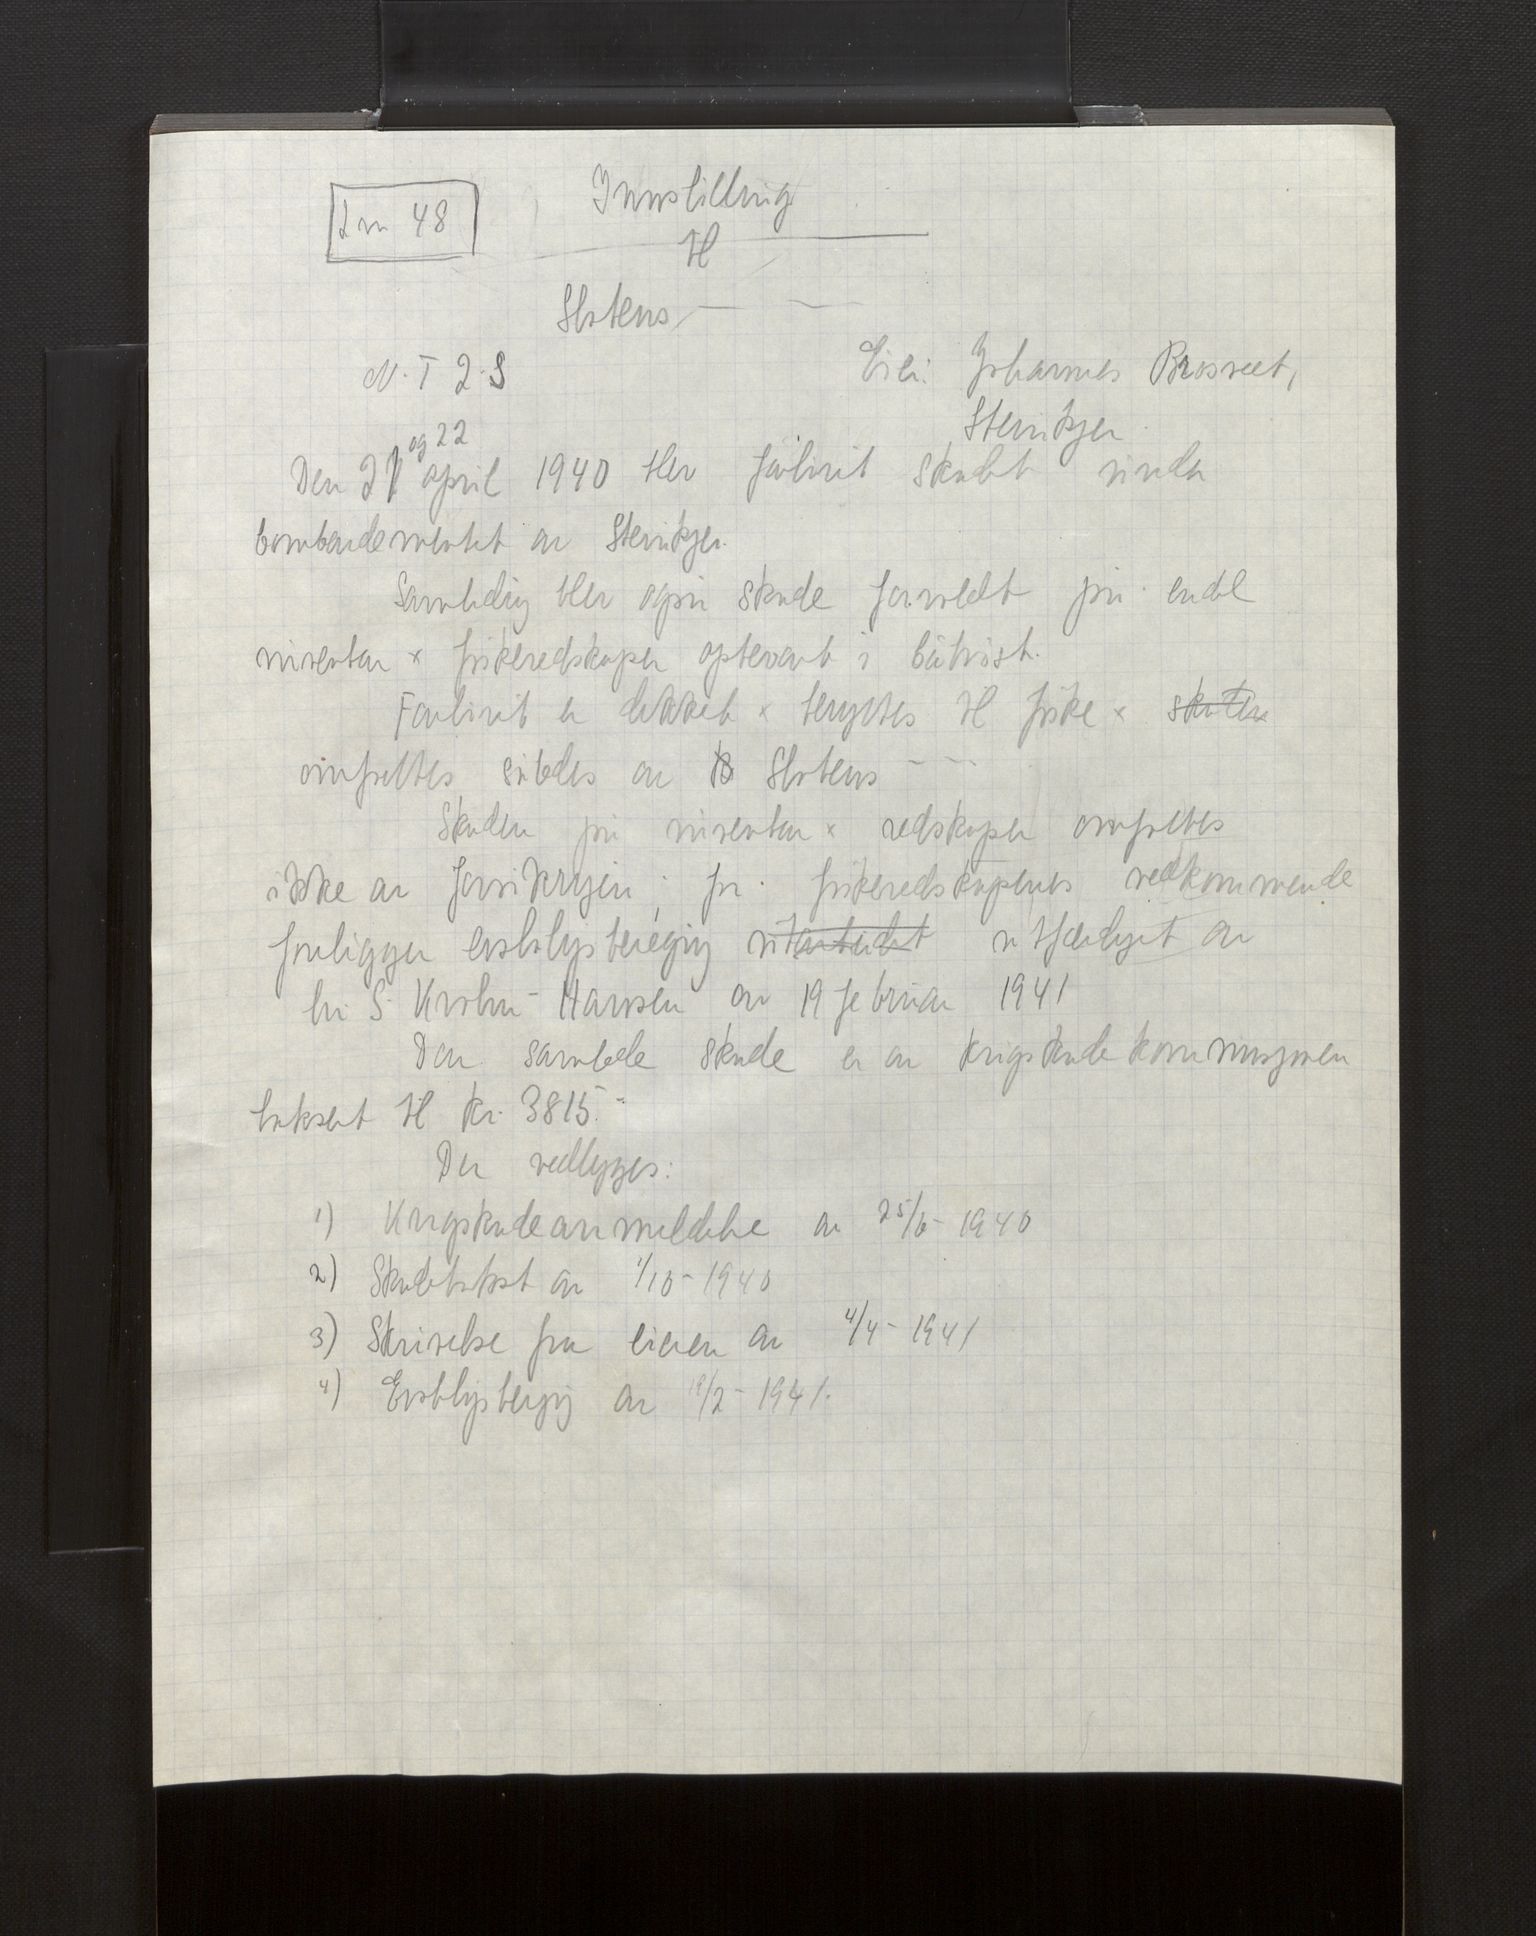 Lm 48
Innstilling
til
Statens
N. T 2. S
Eier: Johannes Brosveet,
Steinkjer
og 22
Den 21 april 1940 blev farkost skadet under
bombardementet av Steinkjer.
Samtidig blev også skade forvoldt på endel
inventar x fiskeredskaper opbevart i båtnøst.
Farkost er dekket x benyttes til fiske x skaten
omfattes således av B Statens
Skaden på inventar x redskaper omfattes
ikke av forsikringen; for fiskeredskapenes vedkommende
foreligger erstatningsberegning utarbeidet utferdiget av
hr S. Krohn-Hansen av 19 februar 1941
Den samlede skade er av krigsskadekommisjonen
taksert til kr. 3815.-
Der vedlegges:
1) Krigsskadeanmeldelse av 25/6-1940
2) Skadetakst av 1/10-1940
3) Skrivelse fra eieren av 4/4-1941
4) Erstatningsberegning av 19/2-1941.